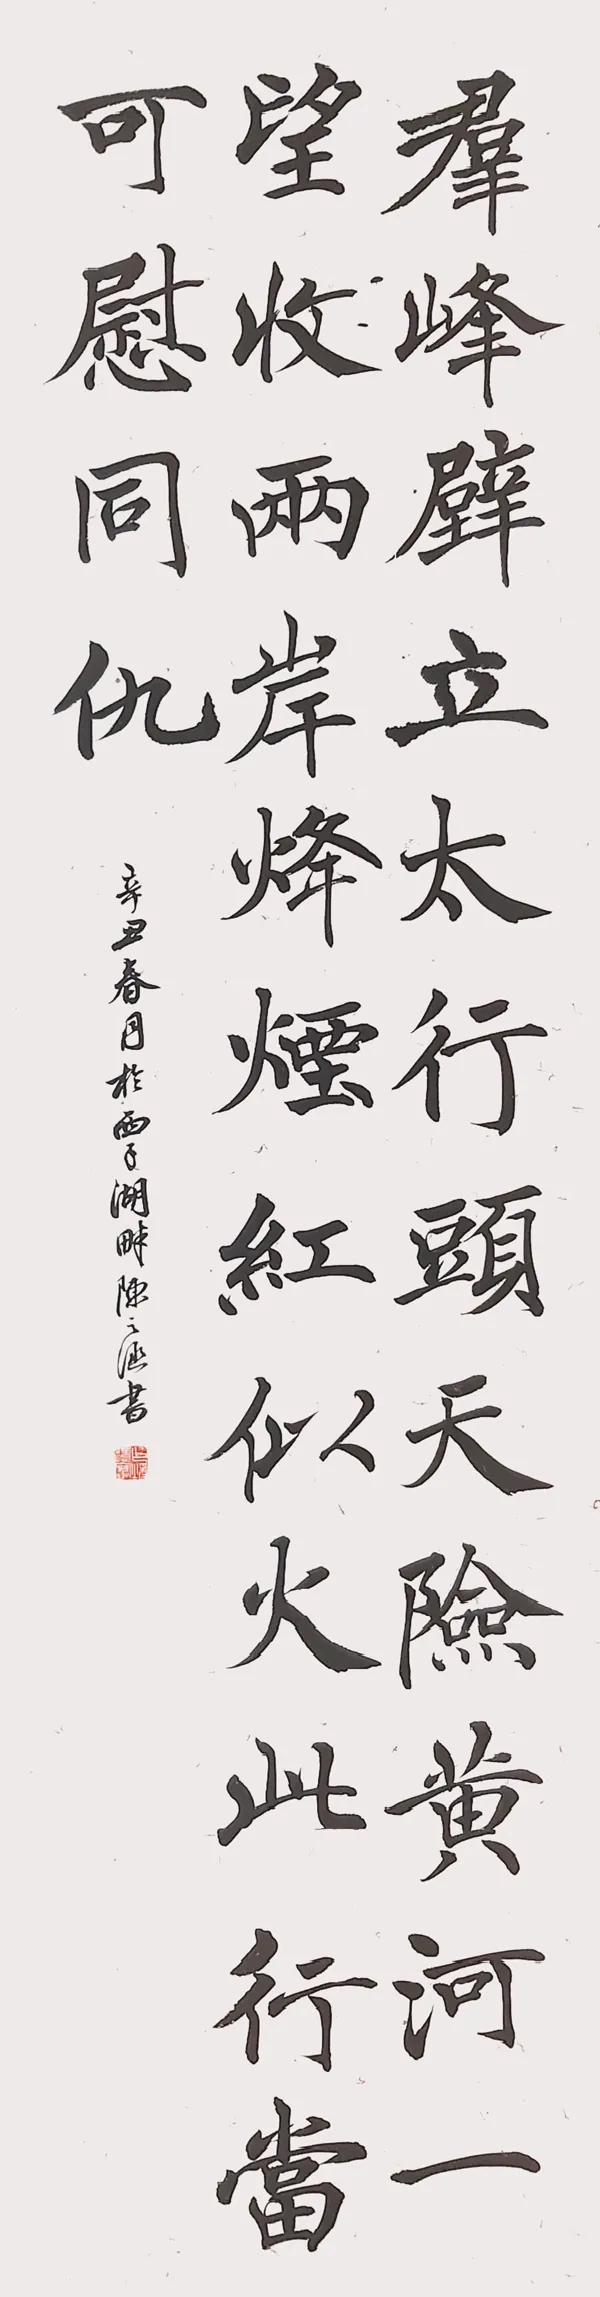 羣峰壁立太行頭天險黄河一
望收兩岸烽煙紅似火此行當
可慰同仇
辛丑春月於西子湖畔陳之涵書